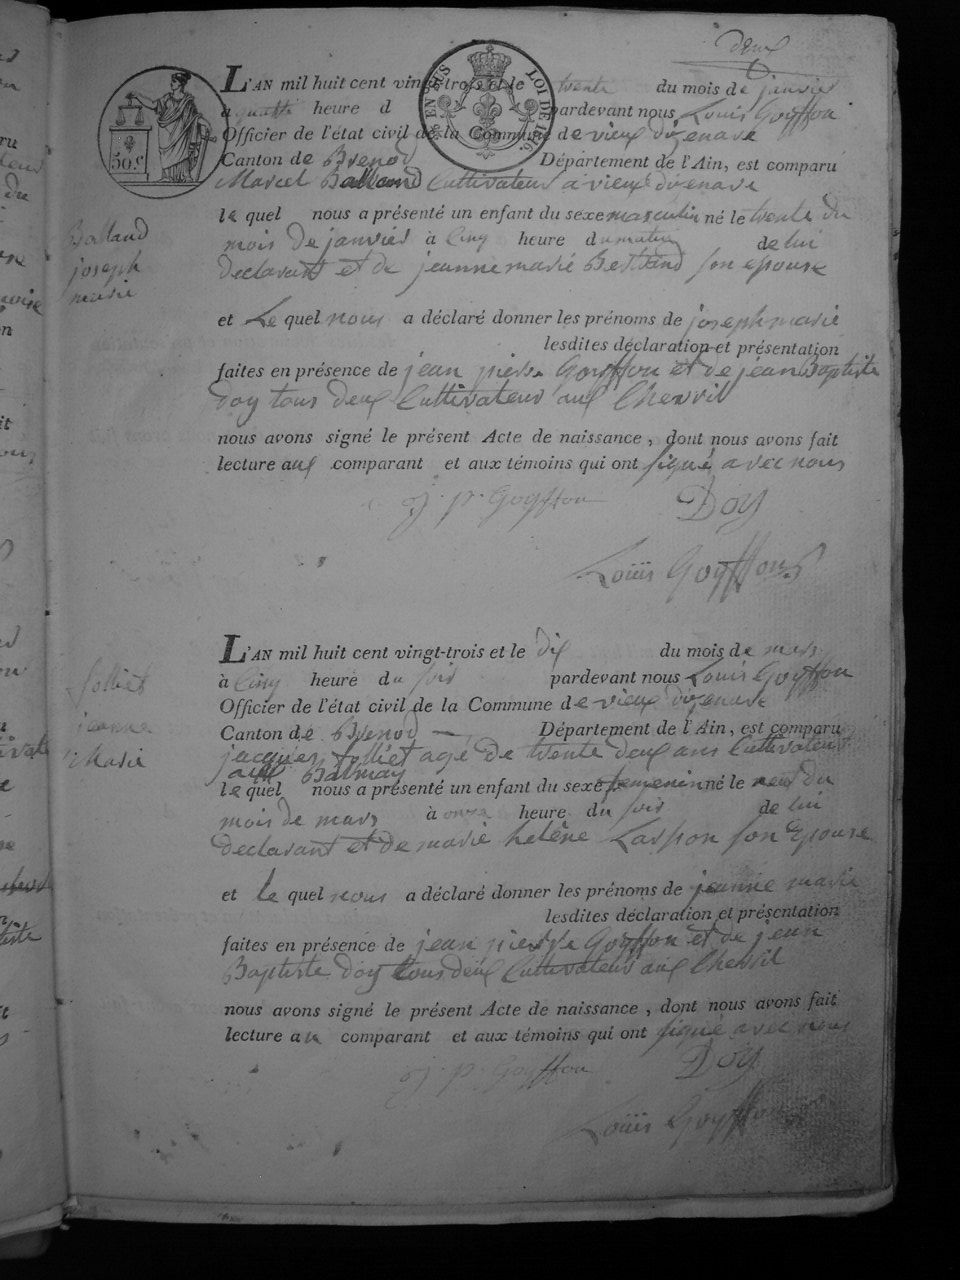 deux
50 c.
EN SUS LOI DE 1816.
L'AN mil huit cent vingt-trois et le trente du mois de janvier
à quatre heure d pardevant nous Louis Goyffon
Officier de l'état civil de la Commune de vieux dizenave
Canton de Brenod Département de l'Ain, est comparu
Marcel Balland Cultivateur a vieux dizenave
le quel nous a présenté un enfant du sexe masculin né le trente du
mois de janvier à Cinq heure du matin de lui
declarant et de jeanne marie Bertrand son epouse
Balland
joseph
marie
et Le quel nous a déclaré donner les prénoms de joseph marie
lesdites déclaration et présentation
faites en présence de jean pierre Goyffon et de jean Baptiste
doy tous deux Cultivateur aux Chevril
nous avons signé le présent Acte de naissance, dont nous avons fait
lecture aux comparant et aux témoins qui ont signé avec nous
j. p. Goyffon Doy
Louis Goyffon
L'AN mil huit cent vingt-trois et le dix du mois de mars
à Cinq heure du soir pardevant nous Louis Goyffon
Officier de l'état civil de la Commune de vieux dizenave
Canton de Brenod Département de l'Ain, est comparu
jacques folliet agé de trente deux ans Cultivateur
aux Balmay
le quel nous a présenté un enfant du sexe femenin né le neuf du
mois de mars à onze heure du soir de lui
declarant et de marie helène Laspon son Epouse
folliet
jeanne
Marie
et le quel nous a déclaré donner les prénoms de jeanne marie
lesdites déclaration et présentation
faites en présence de jean pierre Goyffon et de jean
Baptiste doy tous deux Cultivateur aux Chevril
nous avons signé le présent Acte de naissance, dont nous avons fait
lecture au comparant et aux témoins qui ont signé avec nous
j. p. Goyffon Doy
Louis Goyffon